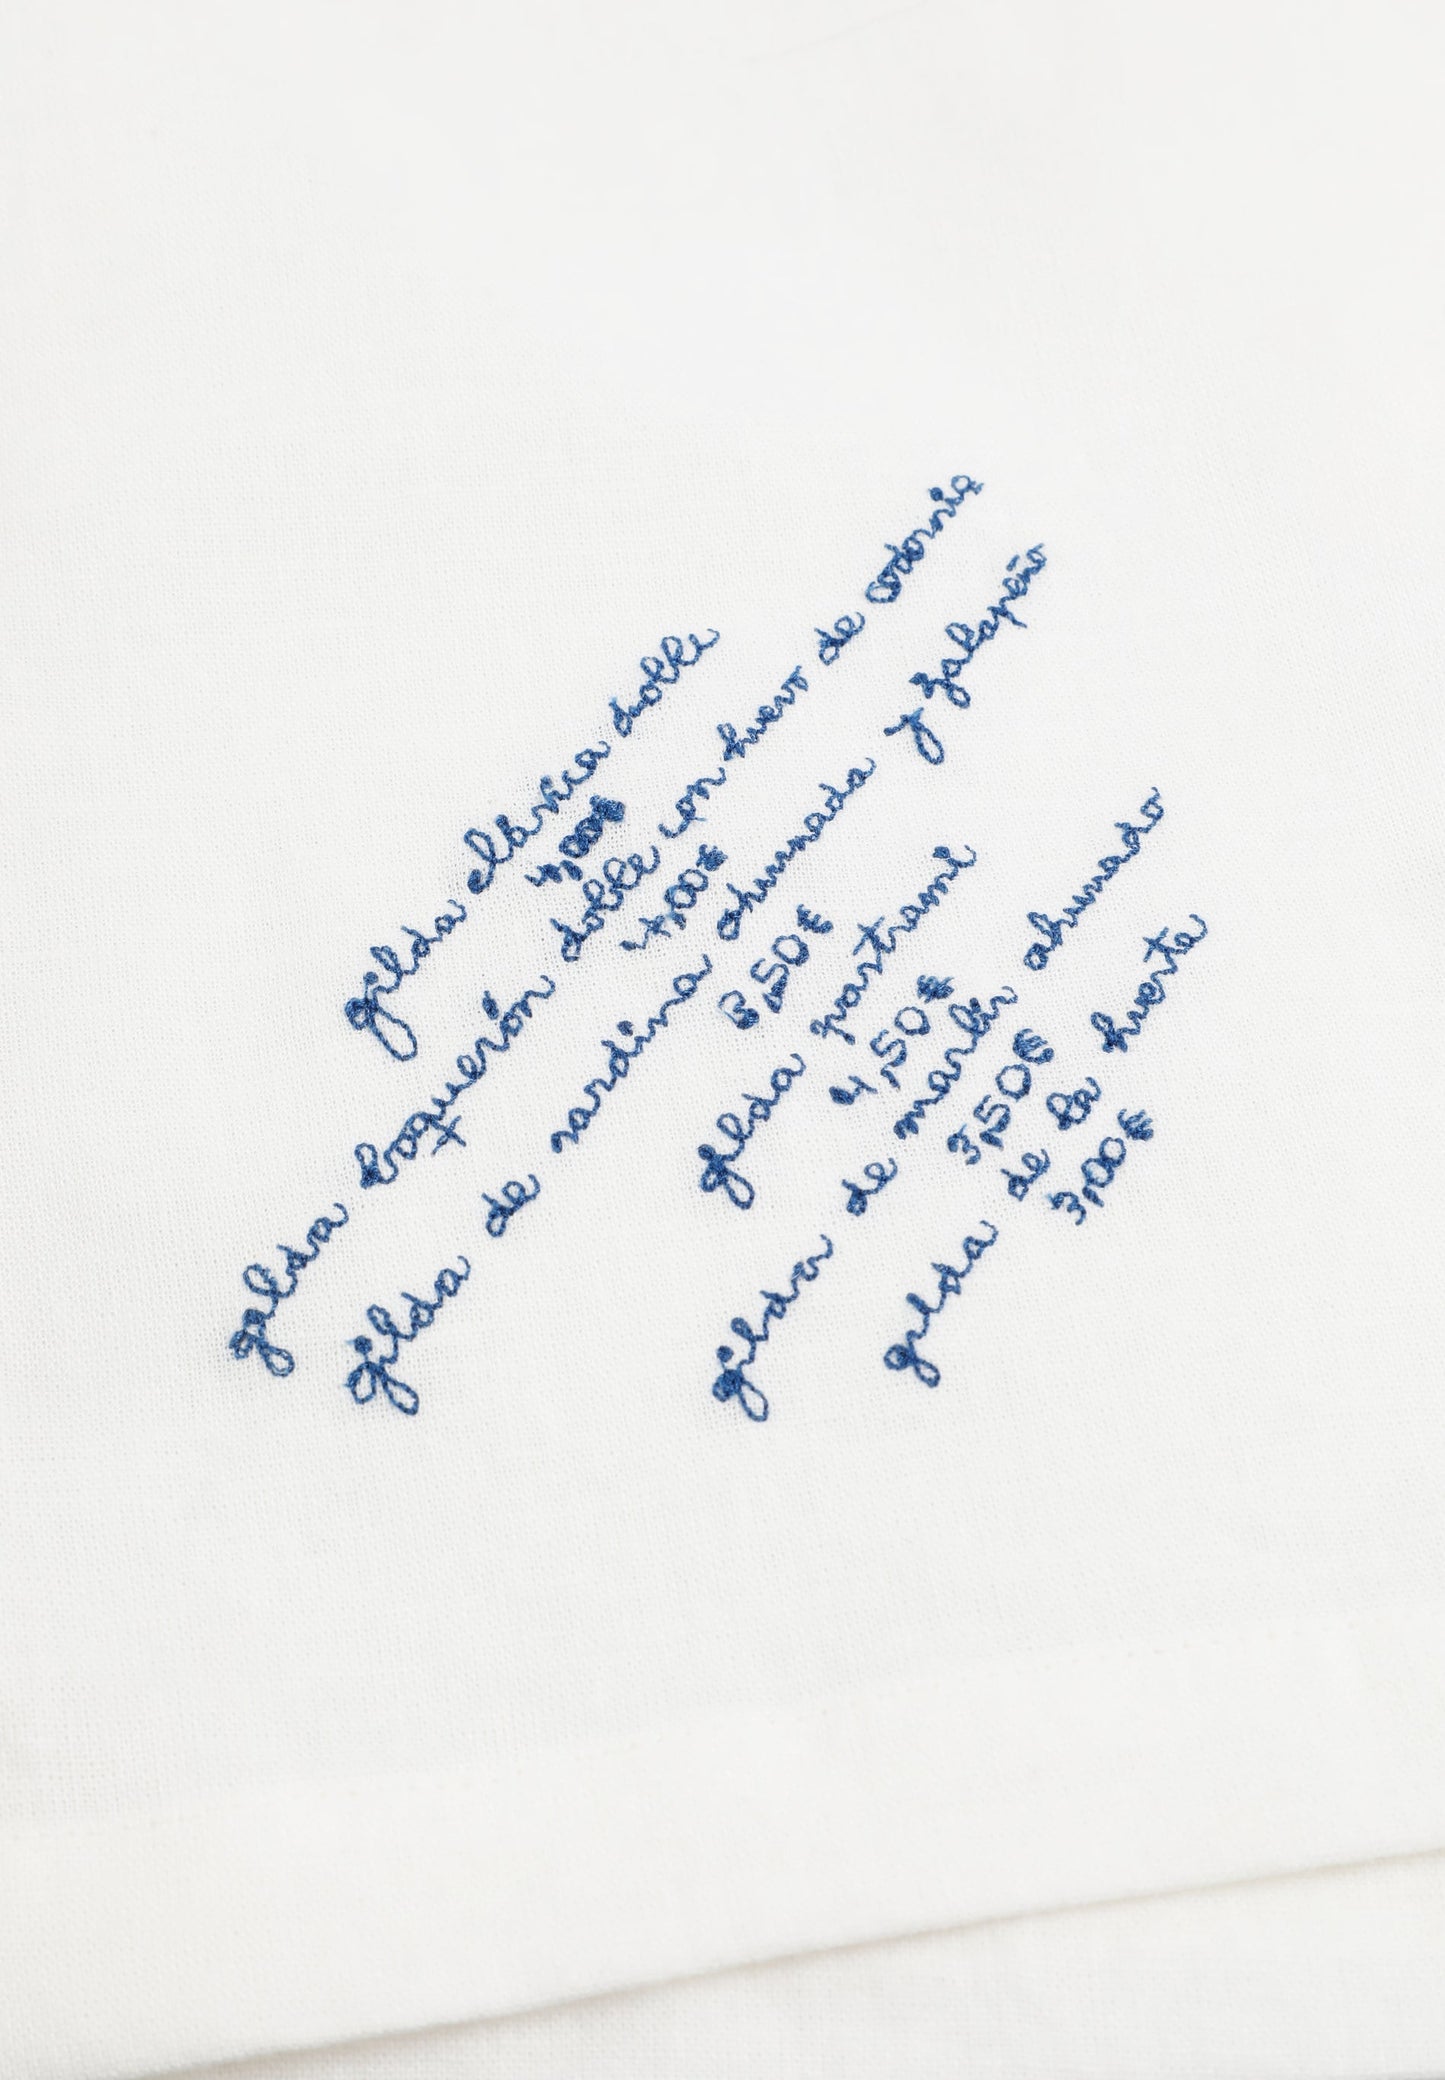 gilda clásica doble
4,00€
gilda boquerón doble con huevo de codorniz
4,00€
gilda de sardina ahumada y jalapeño
3,50€
gilda pastrami
4,50€
gilda de marlin ahumado
3,50€
gilda de la huerta
3,00€